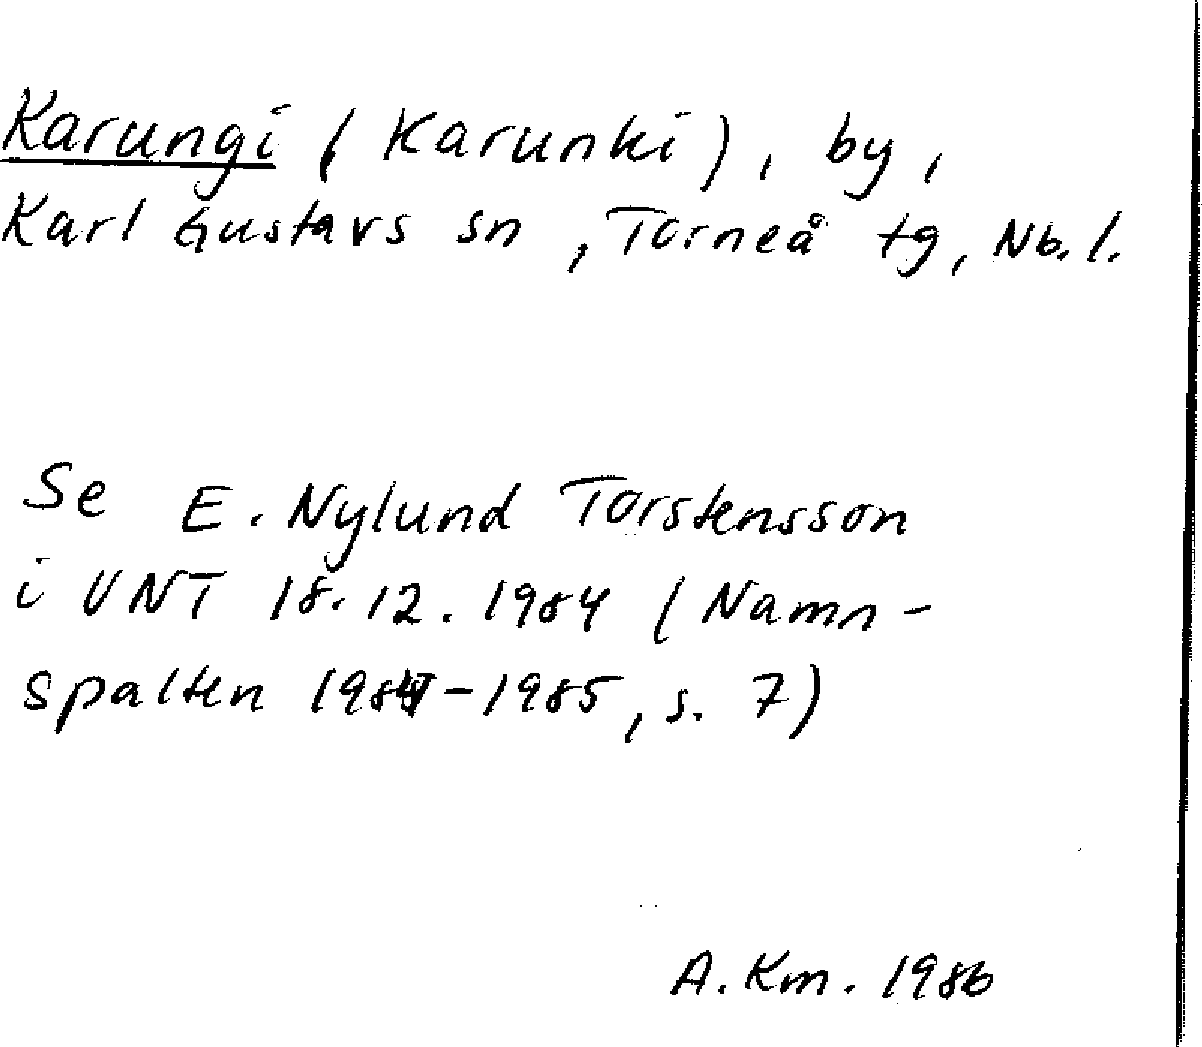 Karungi (Karunki), by,
Karl Gustavs sn, Torneå tg, Nb. l.
Se E. Nylund Torstensson
i UNT 18.12.1984 (Namn-
spalten 1984-1985, s. 7)
A. Km. 1986